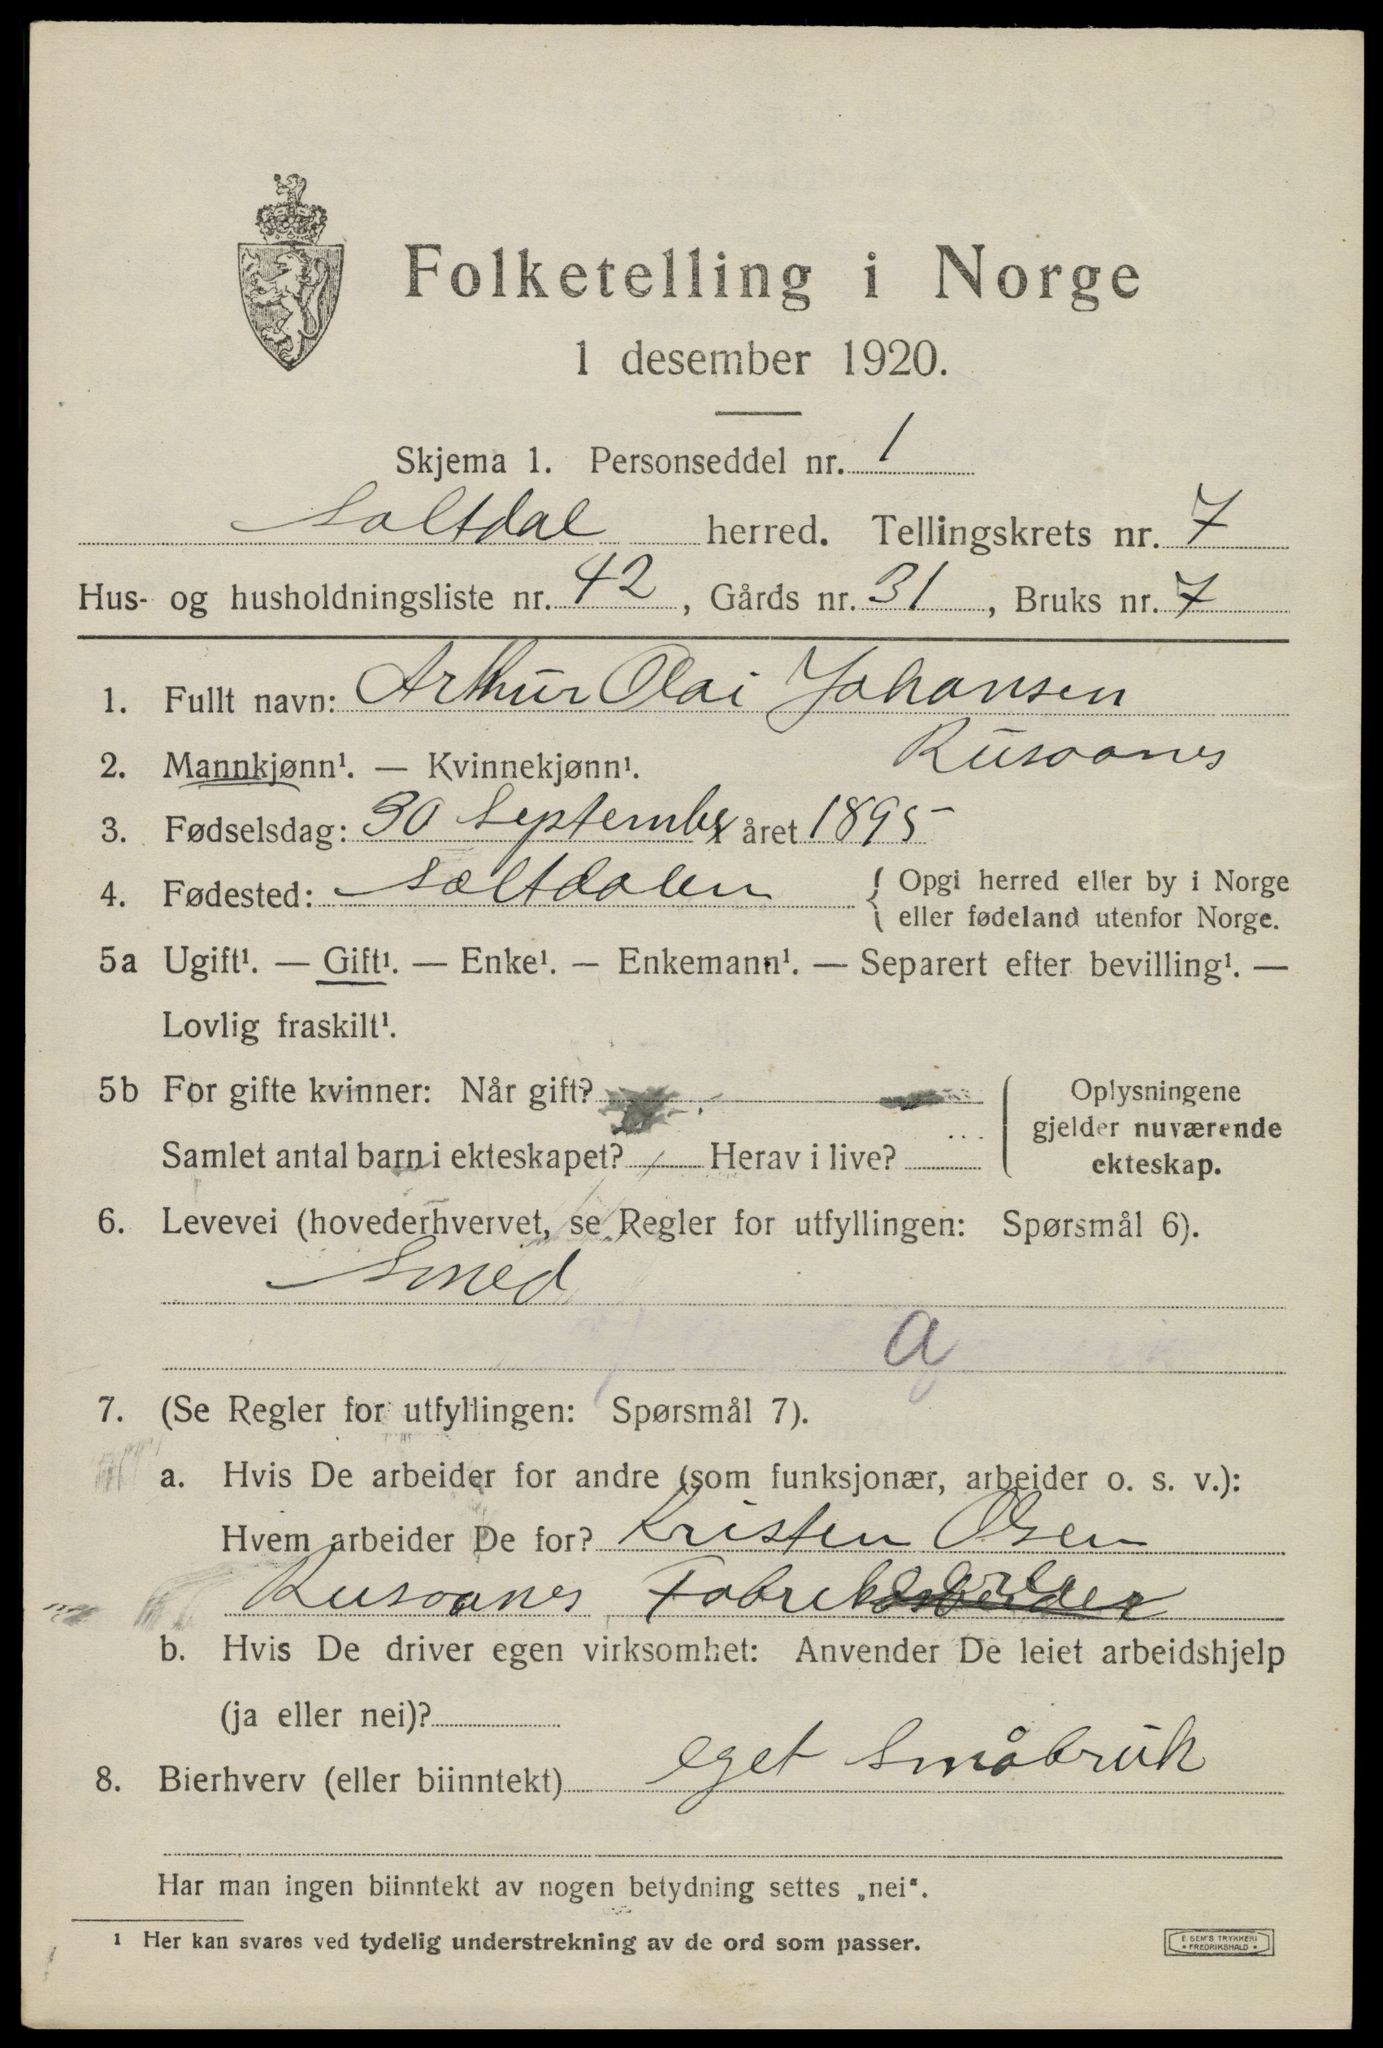 Folketelling i Norge
1 desember 1920.
Skjema 1. Personseddel nr. 1
Saltdal herred. Tellingskrets nr. 7
Hus- og husholdningsliste nr. 42, Gårds nr. 31, Bruks nr. 7
1. Fullt navn: Arthur Olai Johansen
Rusaanes
2. Mannkjønn¹. — Kvinnekjønn¹.
3. Fødselsdag: 30 September året 1895
4. Fødested: Saltdalen { Opgi herred eller by i Norge
eller fødeland utenfor Norge.
5a Ugift¹. — Gift¹. — Enke¹. — Enkemann¹. — Separert efter bevilling¹. —
Lovlig fraskilt¹.
5b For gifte kvinner: Når gift? Oplysningene
gjelder nuværende
Samlet antal barn i ekteskapet? Herav i live? ekteskap.
6. Levevei (hovederhvervet, se Regler for utfyllingen: Spørsmål 6).
Smed
a
7. (Se Regler for utfyllingen: Spørsmål 7).
a. Hvis De arbeider for andre (som funksjonær, arbeider o. s. v.):
Hvem arbeider De for? Kristen Olsen
Rusaanes Fabrik
b. Hvis De driver egen virksomhet: Anvender De leiet arbeidshjelp
(ja eller nei)?
8. Bierhverv (eller biinntekt) eget småbruk
Har man ingen biinntekt av nogen betydning settes „nei“.
¹ Her kan svares ved tydelig understrekning av de ord som passer.
E. SEM'S TRYKKERI
* FREDRIKSHALD *